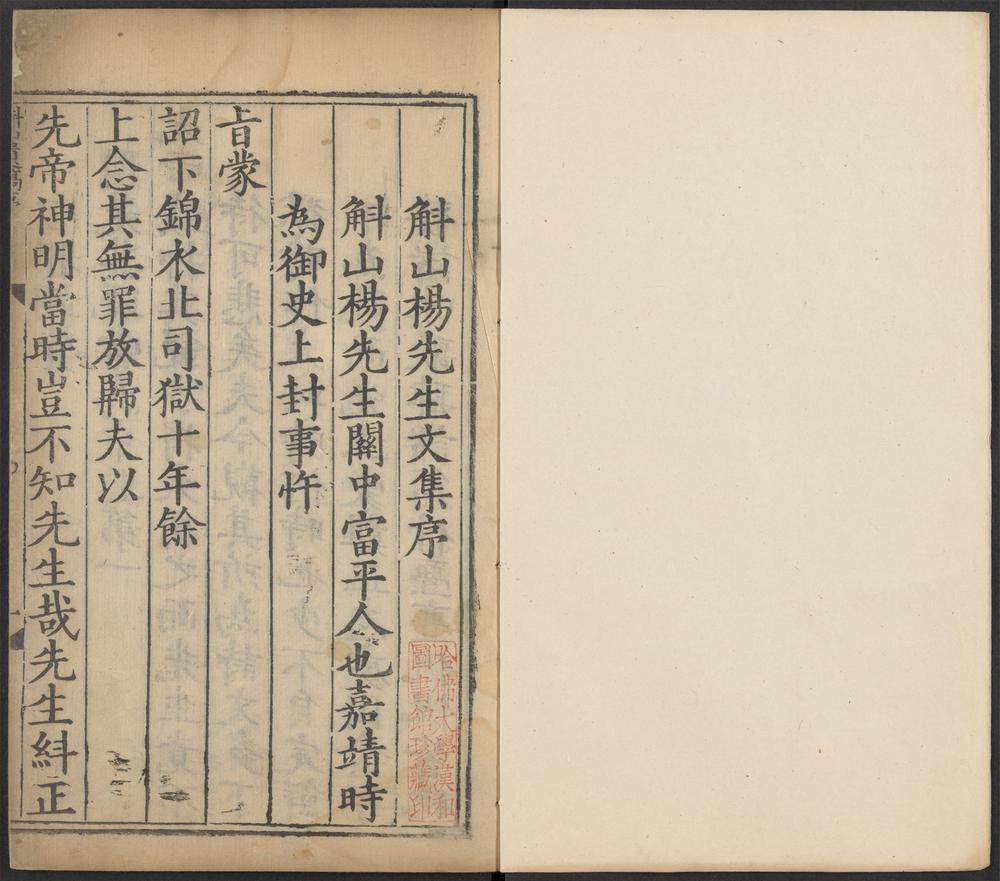 斛山楊先生文集序
斛山楊先生關中富平人也嘉靖時
為御史上封事忤
旨蒙
詔下錦衣北司獄十年餘
上念其無罪放歸夫以
先帝神明當時豈不知先生哉先生糾正
哈佛大學漢和
圖書館珍藏印